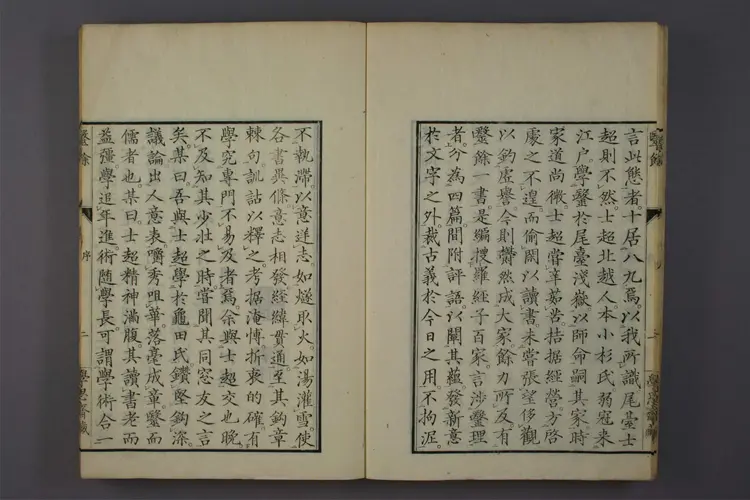 醫餘
言此態者。十居八九焉。以我所識尾臺士
超則不然。士超北越人。本小杉氏。弱冠來
江戶。學醫於尾臺淺嶽。以師命嗣其家。時
家道尚微。士超嘗辛茹苦。拮据經營。方啓
處之不遑。而偷閑以讀書。未嘗張望侈觀
以釣虛譽。今則欝然成大家。餘力所及。有
醫餘一書。是編搜羅經子百家。言涉醫理
者。分為四篇。間附評語。以闡其蘊。發新意
於文字之外。裁古義於今日之用。不拘泥。
不執滯。以意逆志。如燧取火。如湯灌雪。使
各書異條。意志相發。經緯貫通。至其鈎章
棘句。訓詁以釋之。考据淹博。折衷的確。有
學究專門不易及者焉。余與士超交也晚。
不及知其少壯之時。嘗聞其同窓友之言
矣。某曰。吾與士超學於龜田氏。鑽堅鈎深。
議論出人意表。嚼秀咀華。落毫成章。醫而
儒者也。某曰。士超精神滿腹。其讀書老而
益彊。學追年進。術隨學長。可謂學術合一
醫餘
序
二
學思齋藏